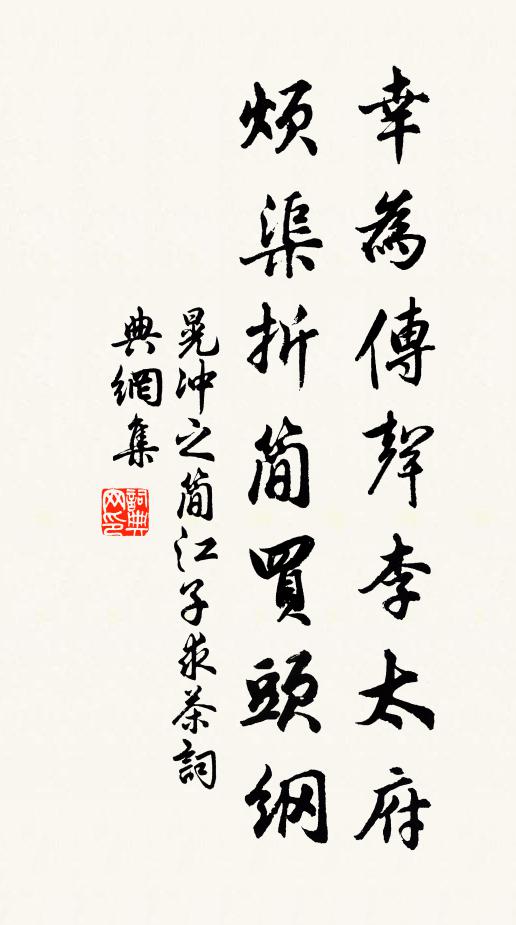 幸為傳聲李太府
煩渠折簡買頭綱
晁冲之簡江子求茶詞
典網集
詞典網印